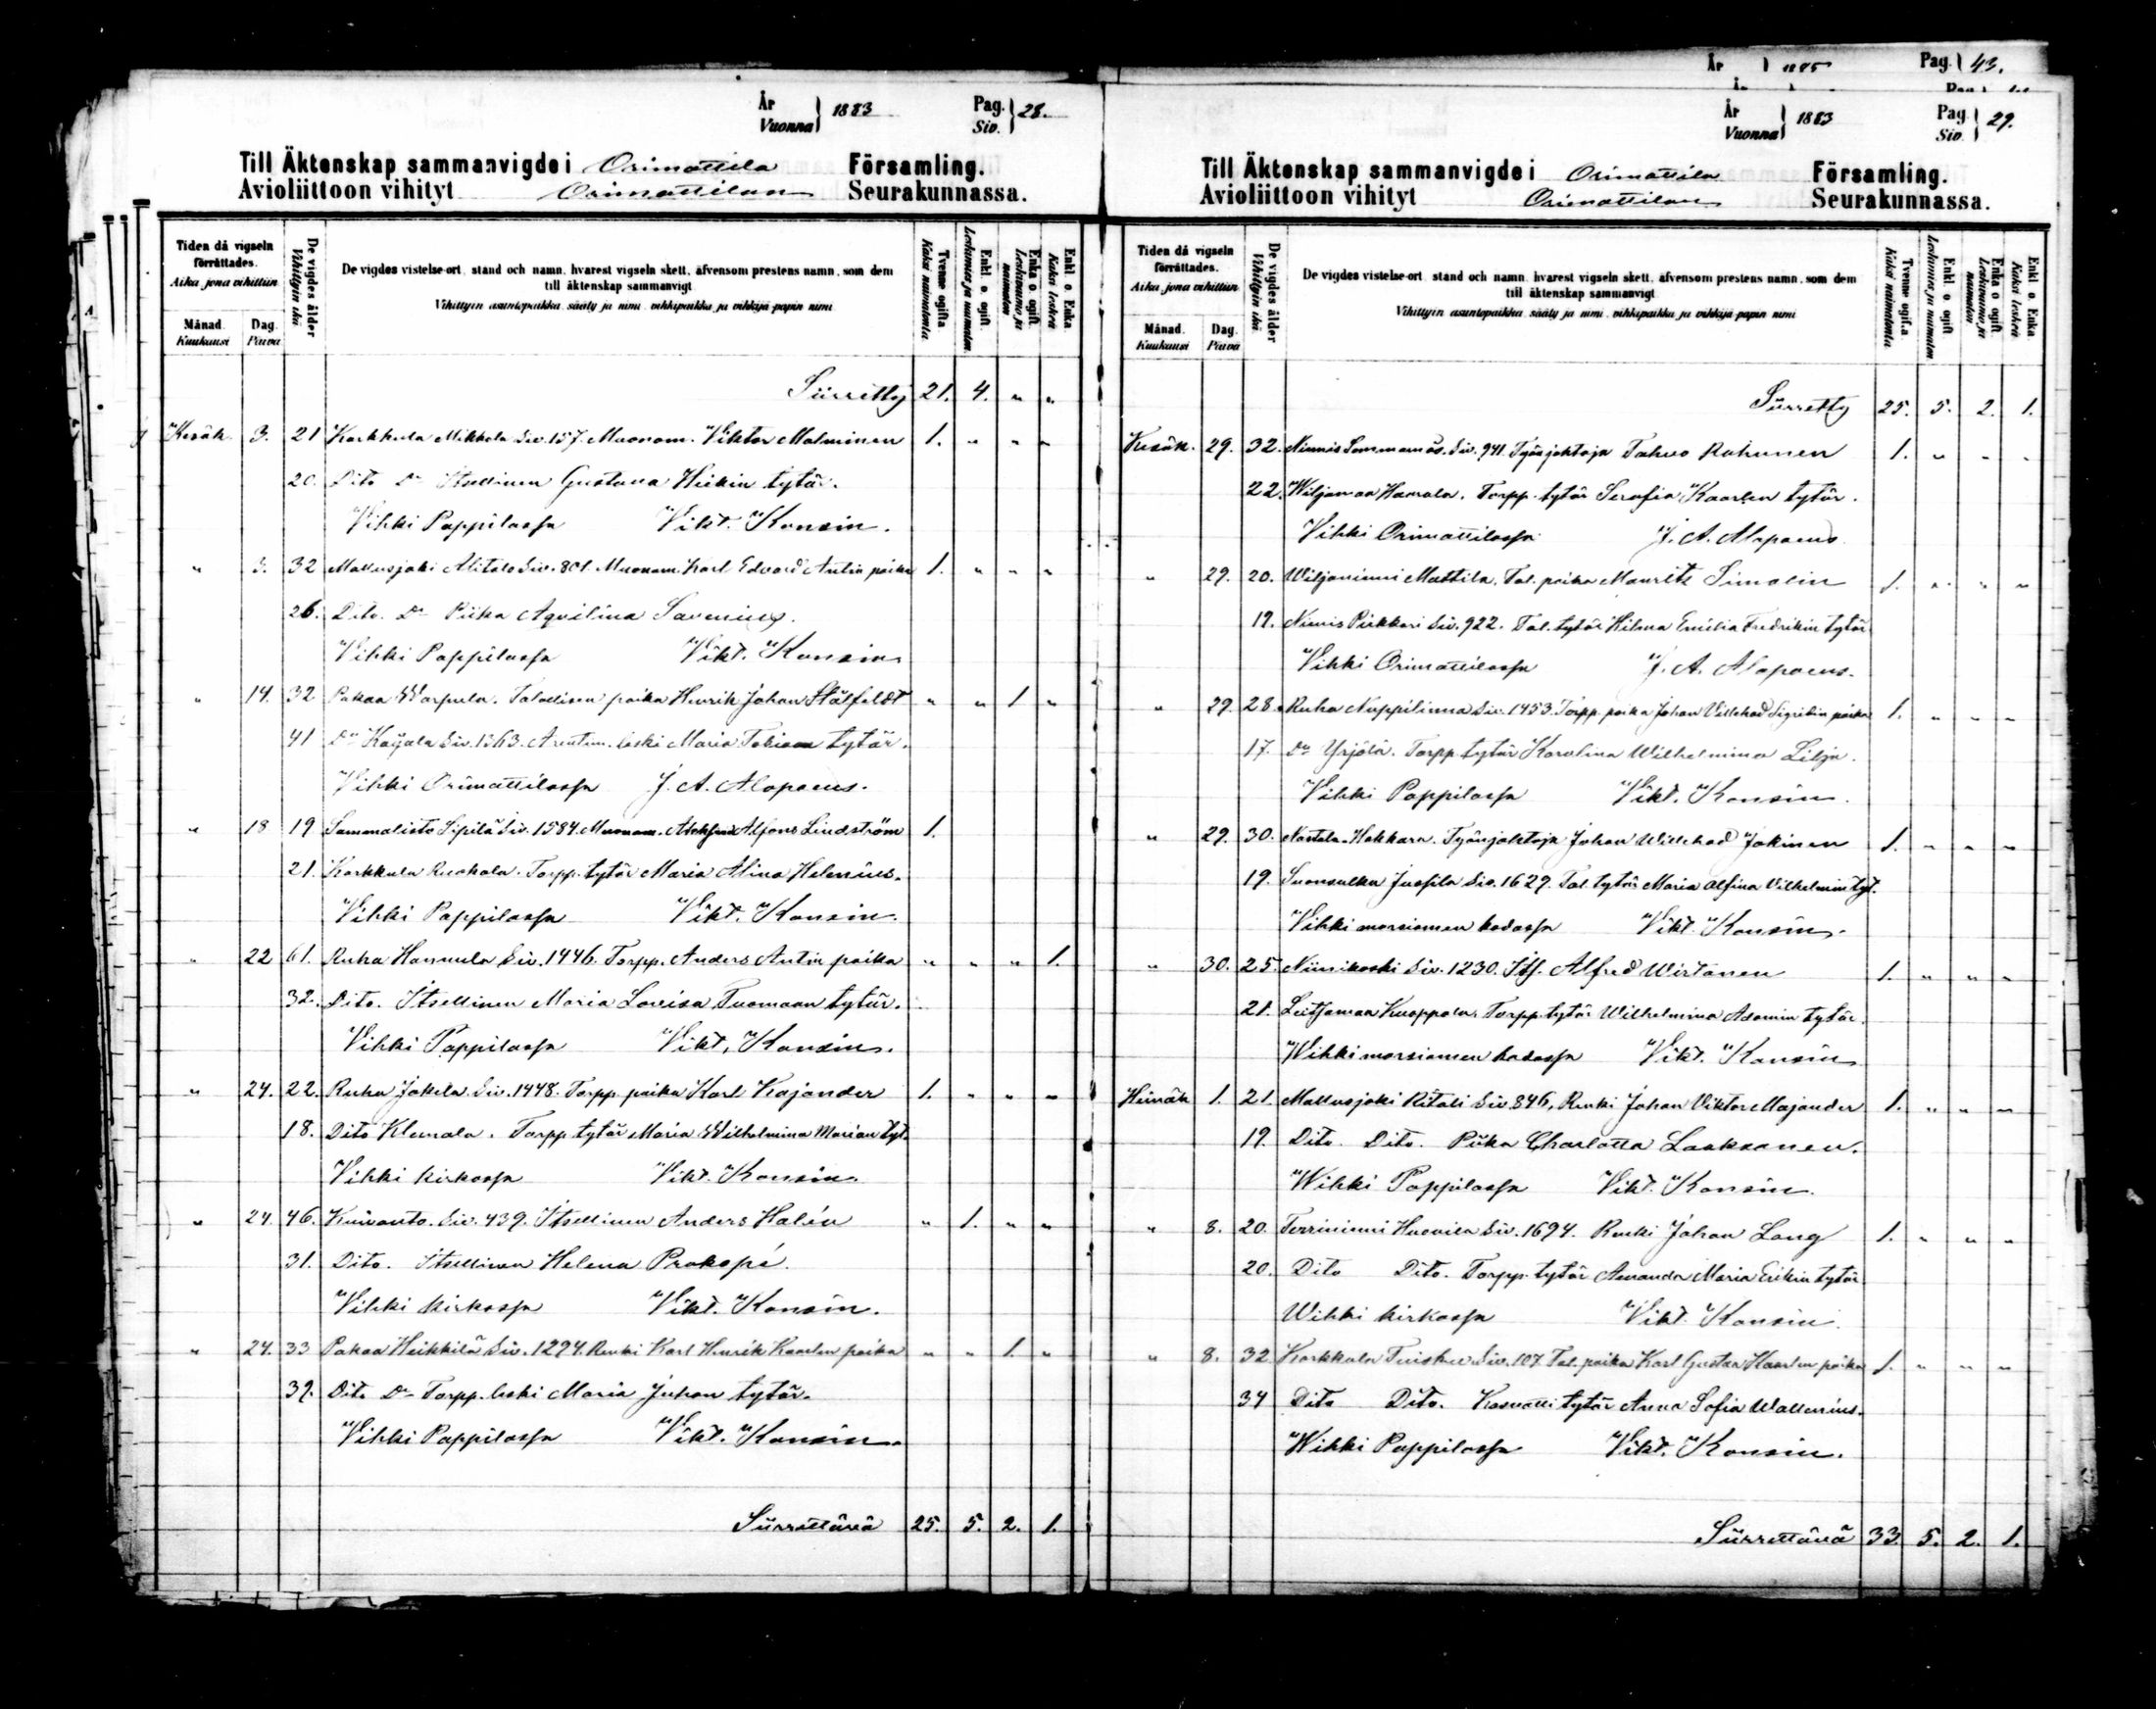 År 1895 Pag. 43.
År Vuonna 1883 Pag. Siv. 28.
Till Äktenskap sammanvigde i Orimattila Församling.
Avioliittoon vihityt Orimattilan Seurakunnassa.
Tiden då vigseln förrättades. Aika jona vihittiin
Månad. Kuukausi
Dag. Päivä
De vigdes ålder Vihittyin ikä
De vigdes vistelse-ort, stand och namn, hvarest vigseln skett, äfvensom prestens namn, som dem till äktenskap sammanvigt
Vihittyin asuntopaikka, sääty ja nimi, vihkipaikka ja vihkijä papin nimi
Tvenne ogifta Kaksi naimatonta
Enkl. o. ogift Leskimies ja naimaton
Enka o. ogift Leskivaimo ja naimaton
Enkl. o. Enka Kaksi leskeä
Siirretty 21. 4. " "
Kesäk. 3. 21 Karkkula Mikkola Siv. 157. Muonam. Viktor Malminen 1. " " "
20. Dito Do Itsellinen Gustava Heikin tytär.
Vihki Pappilassa Vikt. Konsin.
" 3. 32 Mallusjoki Alitalo Siv. 801. Muonam. Karl Edvard Antin poika 1. " " "
26. Dito. Do Piika Aqvilina Savenius.
Vihki Pappilassa Vikt. Konsin
" 14. 32 Pakaa Warpula. Talollisen poika Henrik Johan Stålfeldt " " 1 "
41 Do Kayala Siv. 1363. Arentim. leski Maria Tobiaan tytär.
Vihki Orimattilassa J. A. Alopaeus.
" 18 19 Sammalisto Sipilä Siv. 1584. Muonam. Alfons Lindström 1.
21. Karkkula Ruohola. Torpp. tytär Maria Alina Helenius.
Vihki Pappilassa Vikt. Konsin.
" 22 61. Ruha Hannula Siv. 1446. Torpp. Anders Antin poika " " " 1.
32. Dito. Itsellinen Maria Lovisa Tuomaan tytär.
Vihki Pappilassa Vikt. Konsin.
" 24. 22. Ruha Jokela Siv. 1448. Torpp. poika Karl Kajander 1. " " "
18. Dito Klemola. Torpp. tytär Maria Wilhelmina Marian tyt.
Vihki kirkossa Vikt. Konsin.
" 24. 46. Kuivanto. Siv. 439. Itsellinen Anders Halén " 1. " "
31. Dito. Itsellinen Helena Prokopé.
Vihki kirkossa Vikt. Konsin.
" 24. 33 Pakaa Heikkilä Siv. 1294. Renki Karl Henrik Kaarlen poika " " 1. "
39. Dito Do Torpp. leski Maria Juhan tytär.
Vihki Pappilassa Vikt. Konsin.
Siirrettävä 25. 5. 2. 1.
År Vuonna 1883 Pag. Siv. 29.
Till Äktenskap sammanvigde i Orimattila Församling.
Avioliittoon vihityt Orimattilan Seurakunnassa.
Tiden då vigseln förrättades. Aika jona vihittiin
Månad. Kuukausi
Dag. Päivä
De vigdes ålder Vihittyin ikä
De vigdes vistelse-ort, stand och namn, hvarest vigseln skett, äfvensom prestens namn, som dem till äktenskap sammanvigt
Vihittyin asuntopaikka, sääty ja nimi, vihkipaikka ja vihkijä papin nimi
Tvenne ogifta Kaksi naimatonta
Enkl. o. ogift Leskimies ja naimaton
Enka o. ogift Leskivaimo ja naimaton
Enkl. o. Enka Kaksi leskeä
Siirretty 25. 5. 2. 1.
Kesäk. 29. 32. Niinis Siv. 941. Työnjohtaja Tahvo Rahunen 1. " " "
22. Viljamaa Hamala. Torpp. tytär Serafia Kaarlen tytär.
Vihki Orimattilassa J. A. Alopaeus
" 29. 20. Viljaniemi Mattila, Tal. poika Maurits Simolin 1. " " "
19. Niinis Pirkkari Siv. 922. Tal. tytär Hilma Emilia Fredrikin tytär
Vihki Orimattilassa J. A. Alopaeus.
" 29. 28. Ruha Nuppilinna Siv. 1453. Torpp. poika Johan Villehad Sigridin poika 1. " " "
17. Do Yrjölä. Torpp. tytär Karolina Wilhelmina Lilja.
Vihki Pappilassa Vikt. Konsin.
" 29. 30. Nastola. Hakkara. Työnjohtaja Johan Willehad Jokinen 1. " " "
19. Suonsulka Jussila Siv. 1629. Tal. tytär Maria Alfina Vilhelmin tyt.
Vihki morsiamen kodossa Vikt. Konsin.
" 30. 25. Niinikoski Siv. 1230. Its. Alfred Wirtanen 1. " " "
21. Leitsamaa Kuoppola. Torpp. tytär Wilhelmina Adamin tytär.
Wihki morsiamen kodossa Vikt. Konsin
Heinäk 1. 21. Mallusjoki Ritali Siv. 846, Renki Johan Viktor Majander 1. " " "
19. Dito. Dito. Piika Charlotta Laaksonen.
Wihki Pappilassa Vikt. Konsin.
" 8. 20. Terriniemi Huovila Siv. 1694. Renki Johan Lang 1. " " "
20. Dito Dito. Torpp. tytär Amanda Maria Erikin tytär
Wihki kirkossa Vikt. Konsin.
" 8. 32. Karkkula Tuisku Siv. 107. Tal. poika Karl Gustaa Kaarlen poika 1. " " "
34 Dito Dito. Kasvatti tytär Anna Sofia Wallenius.
Wihki Pappilassa Vikt. Konsin.
Siirrettävä 33. 5. 2. 1.